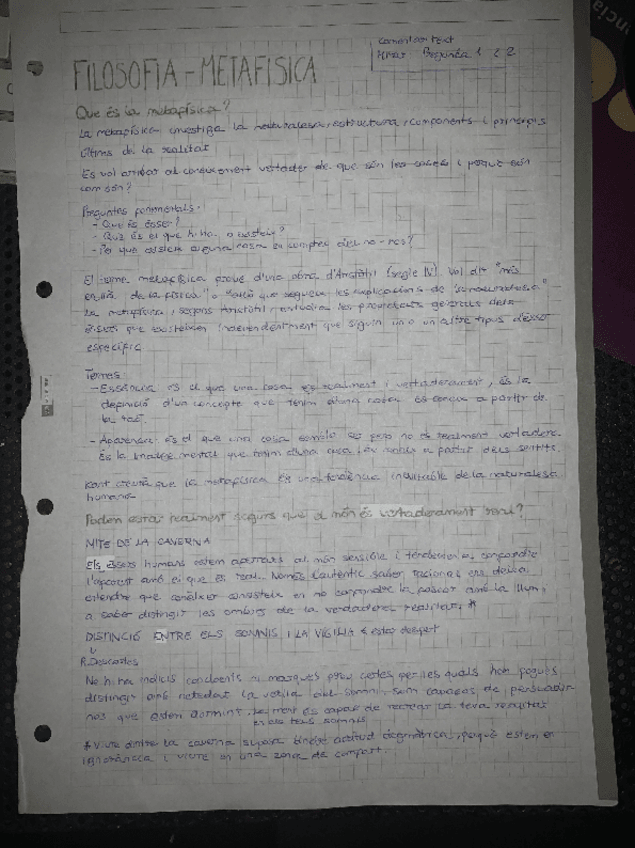 Comentari text
Pregunta 1 2 2
FILOSOFIA - METAFÍSICA
Que és la metafísica?
La metafísica investiga la naturalesa, estructura, components i principis
últims de la realitat
Es vol arribar al coneixement vertader de que són les coses i perque són
com són?
Preguntes fonamentals:
- Que és ésser?
- Que és el que hi ha o existeix?
- Per que existeix alguna cosa en comptes del no-res?
El terme metafísica prové d'una obra d'Aristòtil (segle IV). Vol dir "més
enllà de la física" o
La metafísica, segons Aristòtil, estudia les propietats generals dels
éssers que existeixen independentment que siguin un o un altre tipus d'ésser
específic.
Termes:
- Essència és el que una cosa es realment i vertaderament, és la
definició d'un concepte que tenim d'una cosa. Es coneix a partir de
la raó.
- Aparença: és el que una cosa sembla ser pero no és realment vertadera.
És la imatge mental que tenim d'una cosa a partir dels sentits.
Kant creia que la metafísica és una tendència inevitable de la naturalesa
humana
Podem estar realment segurs que el món és vertaderament real?
MITE DE LA CAVERNA
Els éssers humans estem aferrats al món sensible i tendeixen a confondre
l'aparent amb el que és real. Només l'autèntic saber racional ens deixa
entendre que conèixer consisteix en no confondre la foscor amb la llum,
a saber distingir les ombres de la verdadera realitat. *
DISTINCIÓ ENTRE ELS SOMNIS I LA VIGÍLIA estar despert
R. Descartes
No hi ha indicis concloents ni marques prou certes per les quals hom pogués
distingir amb netedat la vetlla del somni. Som capaços de persuadir-
nos que estem dormint. La ment és capaç de recrear la teva realitat
en els teus somnis
* Viure dintre la caverna suposa tindre actitud dogmàtica, perquè estem en
ignorància i viure en una zona de confort.